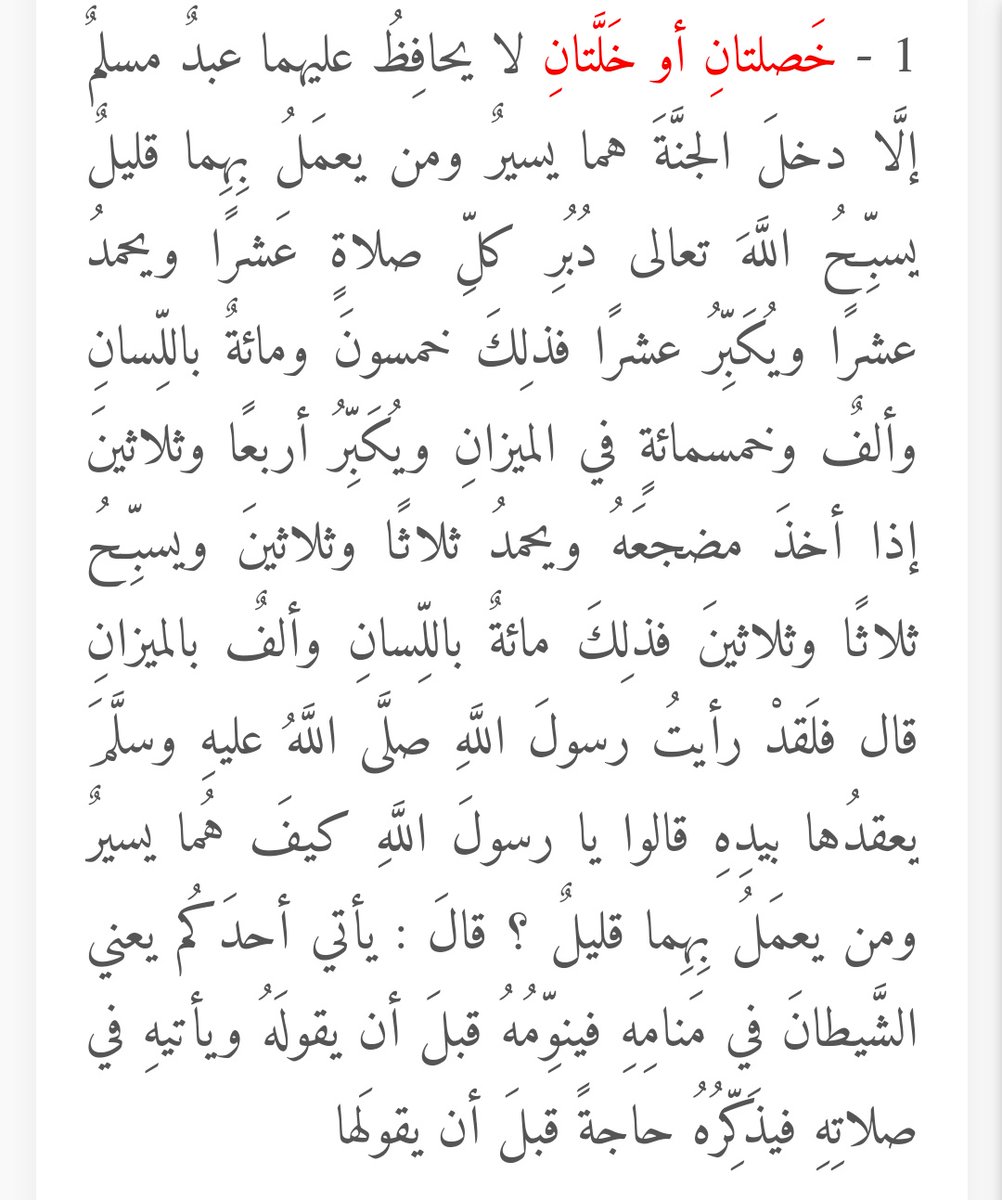 1 - خَصلتانِ أو خَلَّتانِ لا يحافِظُ عليهما عبدٌ مسلمٌ
إلَّا دخلَ الجنَّةَ هما يسيرٌ ومن يعمَلُ بِهِما قليلٌ
يسبِّحُ اللَّهَ تعالى دُبُرِ كلِّ صلاةٍ عَشرًا ويحمدُ
عشرًا ويُكَبِّرُ عشرًا فذلِكَ خمسونَ ومائةٌ باللِّسانِ
وألفٌ وخمسمائةٍ في الميزانِ ويُكَبِّرُ أربعًا وثلاثينَ
إذا أخذَ مضجعَهُ ويحمدُ ثلاثًا وثلاثينَ ويسبِّحُ
ثلاثًا وثلاثينَ فذلِكَ مائةٌ باللِّسانِ وألفٌ بالميزانِ
قال فلَقدْ رأيتُ رسولَ اللَّهِ صلَّى اللَّهُ عليهِ وسلَّمَ
يعقدُها بيدِهِ قالوا يا رسولَ اللَّهِ كيفَ هُما يسيرٌ
ومن يعمَلُ بِهِما قليلٌ ؟ قالَ : يأتي أحدَكُم يعني
الشَّيطانَ في مَنامِهِ فينوِّمُهُ قبلَ أن يقولَهُ ويأتيهِ في
صلاتِهِ فيذَكِّرُهُ حاجةً قبلَ أن يقولَها